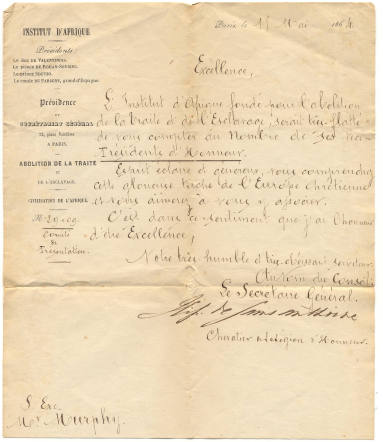 INSTITUT D'AFRIQUE
Présidents
LE DUC DE VALENTINOIS,
LE PRINCE DE ROHAN-SOUBISE,
LE COMTE DE PARSENT, grand d'Espagne
Présidence
ET
SECRÉTARIAT GÉNÉRAL
A PARIS.
ABOLITION DE LA TRAITE
ET
DE L'ESCLAVAGE.
CIVILISATION DE L'AFRIQUE.
Comité
de
Présentation.
Paris le 15 Mai 1864
Excellence,
L'Institut d'Afrique fondé pour l'abolition
de la Traite et de l'Esclavage serait très flatté
de vous compter au Nombre de ses
Présidents d'Honneur.
Esprit éclairé et généreux, vous comprendrez
cette glorieuse tâche de l'Europe chrétienne
et vous aimerez à vous y associer.
C'est dans ce sentiment que j'ai l'honneur
d'être Excellence,
Votre très humble et très obéissant serviteur.
Au nom du Conseil
Le Secrétaire Général.
Chevalier de la Légion d'Honneur.
S. Exc.
Mr Murphy.